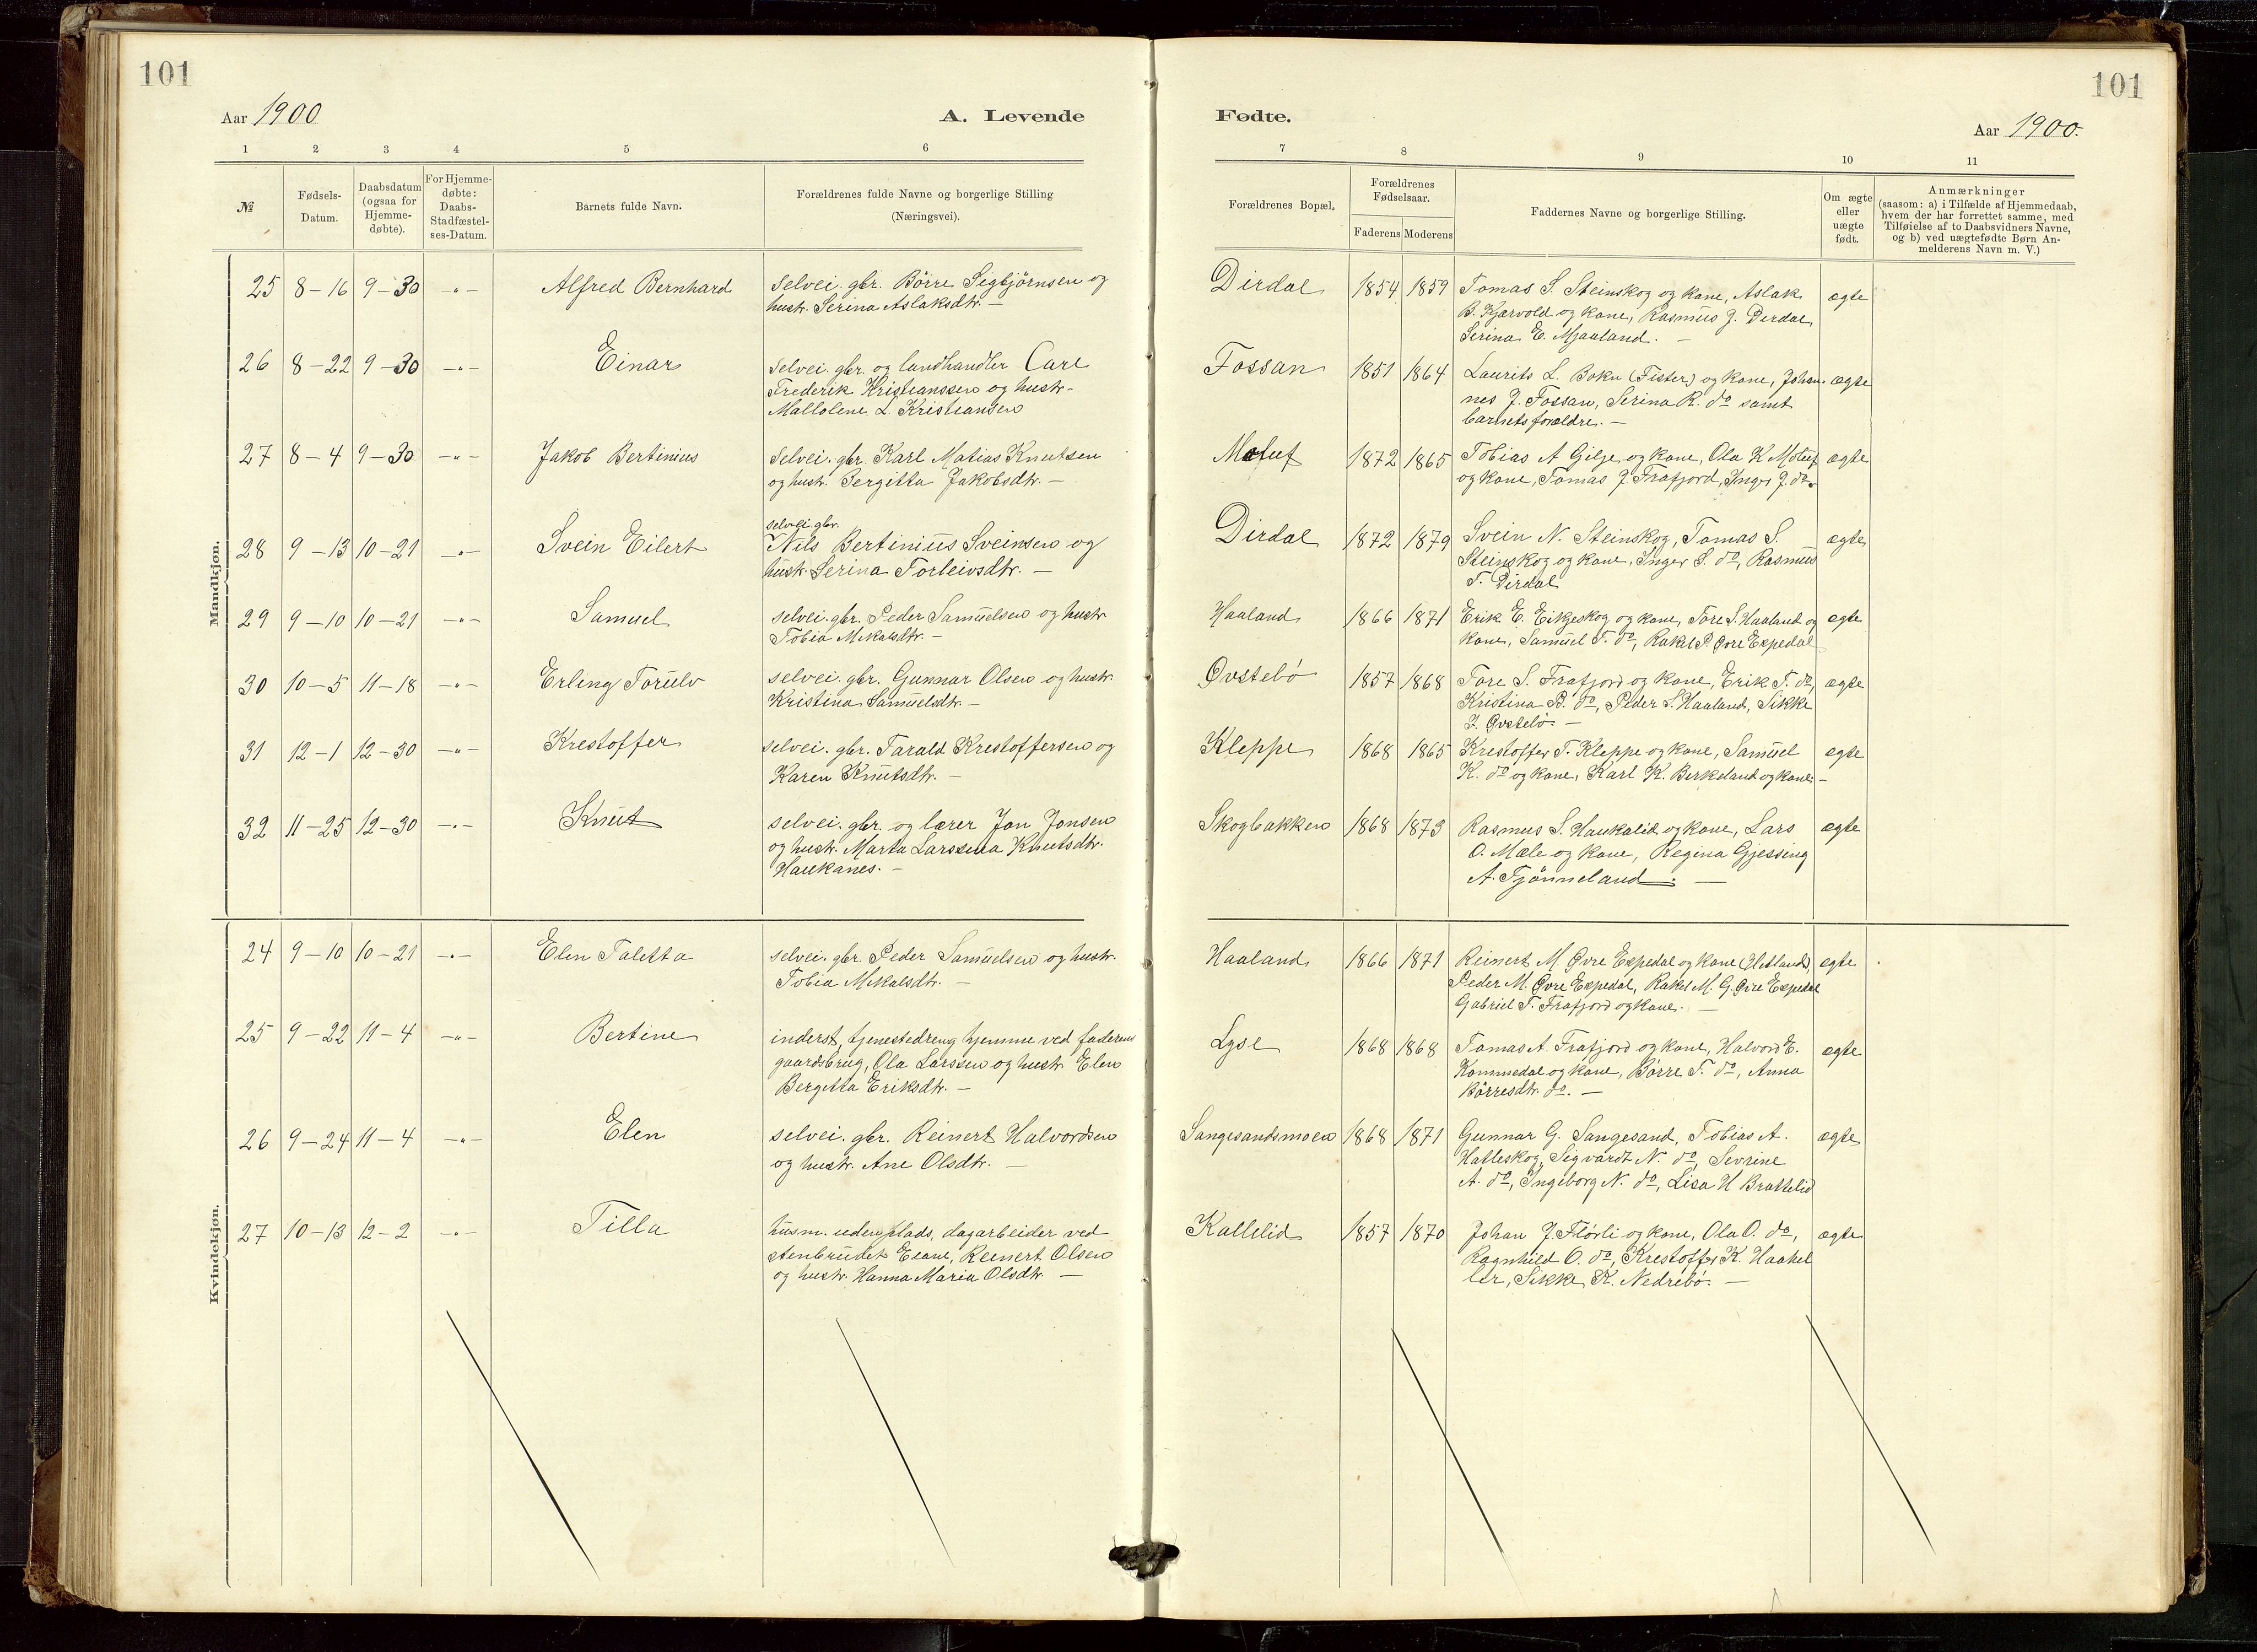 101
101
Aar 1900
A. Levende
Fødte.
Aar 1900.
1 2 3 4 5 6 7 8 9 10 11
№
Fødsels-
Datum.
Daabsdatum
(ogsaa for
Hjemme-
døbte).
For Hjemme-
døbte:
Daabs-
Stadfæstel-
ses-Datum.
Barnets fulde Navn.
Forældrenes fulde Navne og borgerlige Stilling
(Næringsvei).
Forældrenes Bopæl.
Forældrenes
Fødselsaar.
Faderens Moderens
Faddernes Navne og borgerlige Stilling.
Om ægte
eller
uægte
født.
Anmærkninger
(saasom: a) i Tilfælde af Hjemmedaab,
hvem der har forrettet samme, med
Tilføielse af to Daabsvidners Navne,
og b) ved uægtefødte Børn An-
melderens Navn m. V.)
Mandkjøn.
25 8-16 9-30 -„- Alfred Bernhard selvei. gbr. Börre Sigbjörnsen og
hustr. Serina Aslaksdtr. -
Dirdal 1854 1859 Tomas S. Steinskog og kone, Aslak ægte
B. Kjærvold og kone, Rasmus J. Dirdal,
Serina E. Mjaaland. -
26 8-22 9-30 -„- Einar selvei. gbr. og landhandler Carl
Frederik Kristianssen og hustr.
Mallolene L. Kristiansen
Fossan 1851 1864 Laurits L. Bokn (Fister) og kone, Johan- ægte
nes J. Fossan, Serina R. do samt
barnets forældre. -
27 8-4 9-30 -„- Jakob Bertinius selvei. gbr. Karl Matias Knutsen
og hustr. Bergitta Jakobsdtr. -
Moluf 1872 1865 Tobias A Gilje og kone, Ola K Moluf ægte
og kone, Tomas J Frafjord, Inger J. do.
28 9-13 10-21 -„- Svein Eilert selvei. gbr.
Nils Bertinius Sveinsen og
hustr. Serina Torleivsdtr. -
Dirdal 1872 1879 Svein N. Steinskog, Tomas S. ægte
Steinskog og kone, Inger S. do, Rasmus
T. Dirdal
29 9-10 10-21 -„- Samuel selvei. gbr. Peder Samuelsen og hustr.
Tobia Mikalsdtr. -
Haaland 1866 1871 Erik E. Eikjeskog og kone, Tore S. Haaland og ægte
kone, Samuel T. do, Rakel P. Øvre Espedal
30 10-5 11-18 -„- Erling Torulv selvei. gbr. Gunnar Olsen og hustr.
Kristina Samuelsdtr. -
Øvstebö 1857 1868 Tore S. Frafjord og kone, Erik T. do, ægte
Kristina B. do, Peder S. Haaland, Sikke
J. Øvstebö. -
31 12-1 12-30 -„- Krestoffer selvei. gbr. Tarald Krestoffersen og
Karen Knutsdtr. -
Kleppe 1868 1865 Krestoffer T. Kleppe og kone, Samuel ægte
K. do og kone, Karl K. Berkeland og kone -
32 11-25 12-30 -„- Knut selvei. gbr. og lærer Jon Jonsen
og hustr. Marta Larssina Knutsdtr.
Haukanes. -
Skogbakken 1868 1873 Rasmus S. Haukalid og kone, Lars ægte
O. Mæle og kone, Regina Gjessing
A. Tjönneland. -
Kvindekjøn.
24 9-10 10-21 -„- Elen Taletta selvei. gbr. Peder Samuelsen og hustr.
Tobia Mikalsdtr. -
Haaland 1866 1871 Reinert M Øvre Espedal og kone (Hetland), ægte
Peder M. Øvre Espedal, Rakel M. G. Øvre Espedal
Gabriel T. Frafjord og kone. -
25 9-22 11-4 -„- Bertine inderst, tjenestedreng hjemme ved faderens
gaardsbrug, Ola Larssen og hustr. Elen
Bergitta Eriksdtr. -
Lyse 1868 1868 Tomas A. Frafjord og kone, Halvord E. ægte
Kommedal og kone, Börre T. do, Anna
Börresdtr. do. -
26 9-24 11-4 -„- Elen selvei. gbr. Reinert Halvordsen
og hustr. Ane Olsdtr. -
Sangesandsmoen 1868 1871 Gunnar G. Sangesand, Tobias A. ægte
Hatleskog, Sigvardt N. do, Sevrine
A. do, Ingeborg N. do, Lisa H Brattelid
27 10-13 12-2 -„- Tilla husm. uden plads, dagarbeider ved
stenbrudet Eiane, Reinert Olsen
og hustr. Hanna Maria Olsdtr. -
Kallelid 1857 1870 Johan J. Flörli og kone, Ola O. do, ægte
Ragnhild O. do, Krestoffer K. Haahel
ler, Sikke K. Nedrebö. -